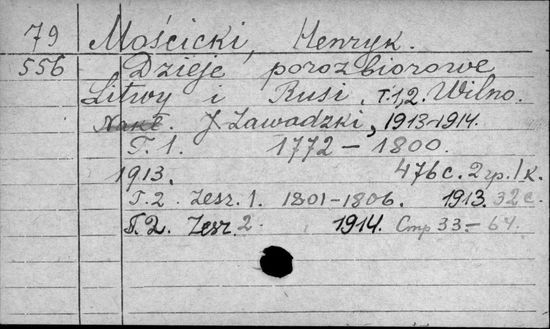 79 Mościcki, Henryk.
556 Dzieje porozbiorowe
Litwy i Rusi. T.1,2. Wilno.
Nakł. J. Zawadzki, 1913-1914.
T. 1. 1772 – 1800.
1913. 476 с. 2 up. 1 k.
T. 2. Zesz. 1. 1801-1806. 1913. 32 с.
T. 2. Zesz. 2. 1914. Стр 33-64.